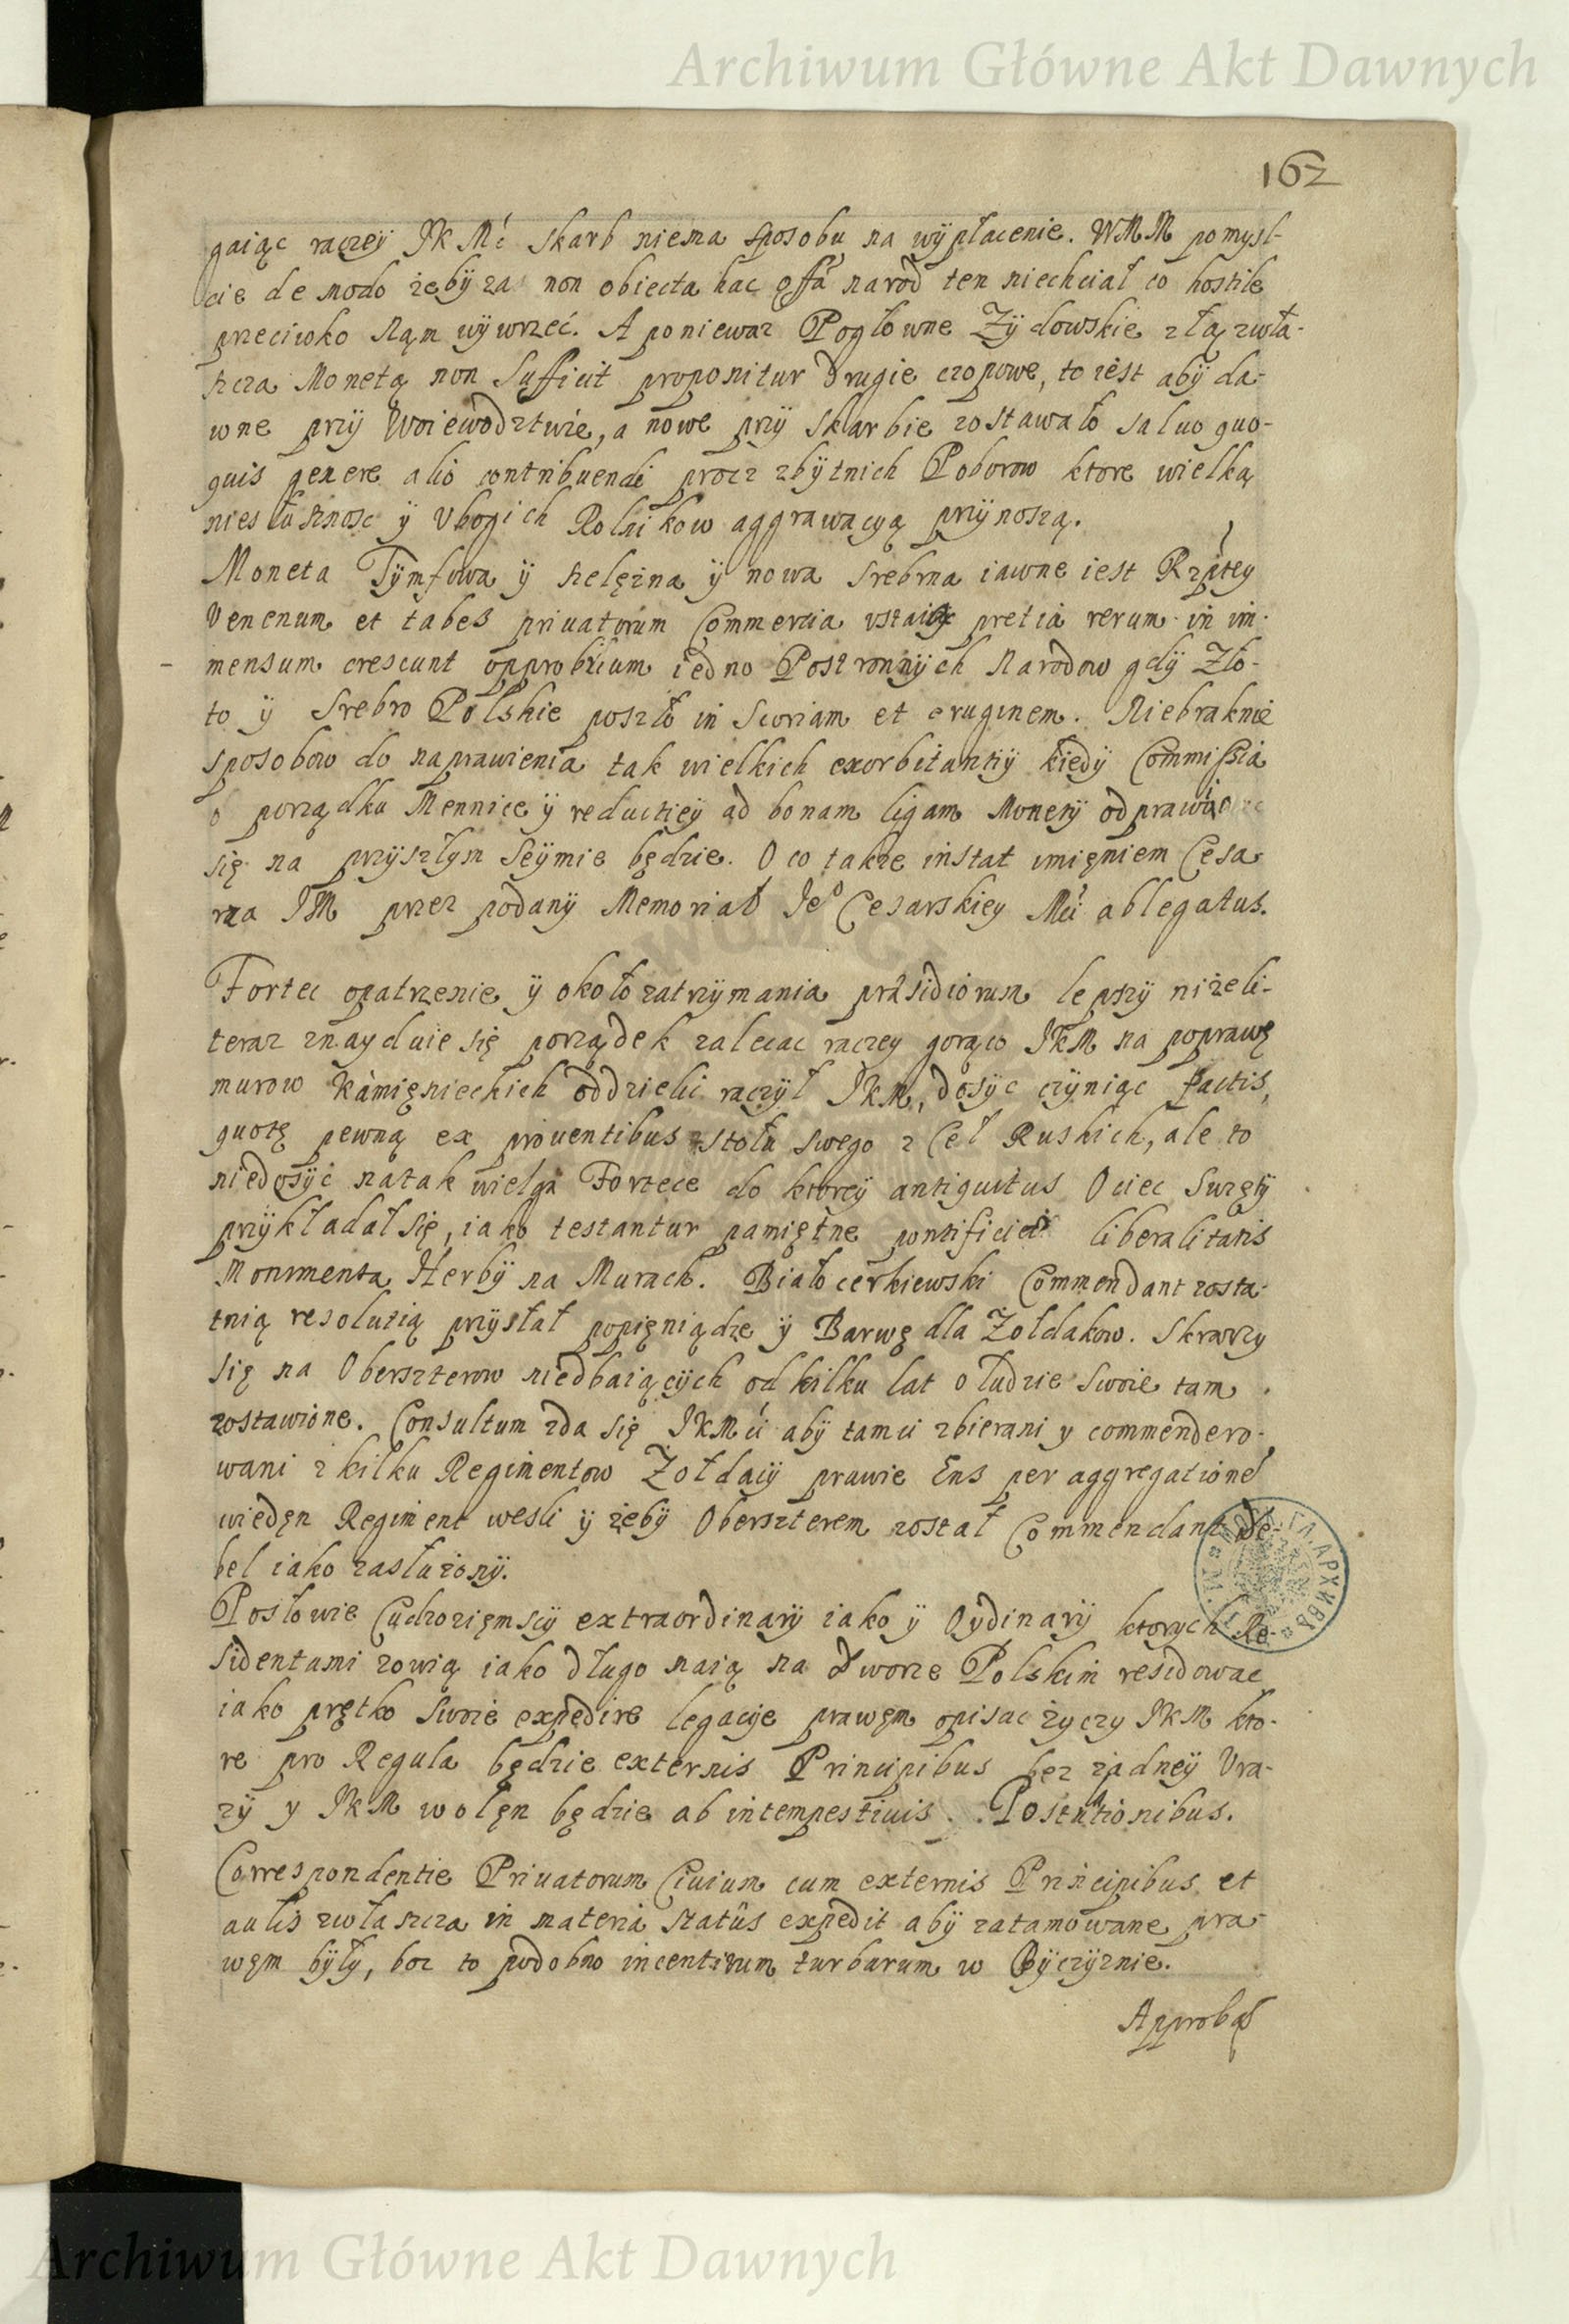 Archiwum Główne Akt Dawnych
162
gaiąc raczey JKMć skarb niema sposobu na wÿpłacenie. WMM pomysl-
cie de modo żebÿ za non obiecta hac offa narod ten niechciał co hostile
przeciwko nąm wÿwrzeć. A poniewaz Pogłowne Zÿdowskie złą zwła-
szcza Monetą non sufficit proponitur drugie czopowe, to iest abÿ da-
wne przÿ Woiewodztwie, a nowe przÿ skarbie zostawało saluo quo-
quis genere alio contribuendi procz zbÿtnich Poborow ktore wielką
niesłusznosc ÿ Vbogich Rolnikow aggrawacyą przÿnoszą.
Moneta Tÿmfowa ÿ szelężna ÿ nowa srebrna iawne iest Rzptey
Venenum et tabes priuatorum Commercia vstaią pretia rerum in im-
mensum crescunt opprobrium iedno Postronnÿch Narodow gdÿ Zło-
to ÿ srebro Polskie poszło in scoriam et eruginem. Niebraknie
sposobow do naprawienia tak wielkich exorbitantiÿ kiedÿ Commissia
o porządku Mennice ÿ reductieÿ ad bonam ligam Monetÿ odprawiac
się na przÿszłym Seÿmie będzie. O co także instat imięniem Cesa-
rza JM przez podanÿ Memoriał Je° Cesarskiey Mci ablegatus.
Fortec opatrzenie ÿ około zatrzÿmania præsidiorum lepszÿ niżeli-
teraz znayduie się porządek zalecac raczey gorąco JKM na poprawę
murow Kamięnieckich oddzielić raczÿł JKM, dosÿc czÿniąc pactis,
quotę pewną ex prouentibus stołu swego z Ceł Ruskich, ale to
niedosÿć natak wielgą Fortece do ktoreÿ antiquitus Ociec Swiętÿ
przÿkładał się, iako testantur pamiętne pontificiæ liberalitatis
Monumenta Herbÿ na Murach. Białocerkiewski Commendant zosta-
tnią resolutią przÿsłał popięniądze ÿ Barwę dla Żołdakow. Skarzy
się na Oberszterow niedbaiącÿch od kilku lat o ludzie swoie tam
zostawione. Consultum zda się JKMci abÿ tamci zbierani y commendero-
wani z kilku Regimentow Żołdacÿ prawie Ens per aggregationẽ
wiedęn Regiment wesli ÿ żebÿ Oberszterem został Commendant Pe-
bel iako zasłużonÿ.
Posłowie Cudzoziemscÿ extraordinarÿ iako ÿ Oydinarÿ ktorych Re-
sidentami zowią iako długo maią na dworze Polskim residowac
iako prętko swoie expedire legacÿe prawęm opisac życzy JKM kto-
re pro Regula będzie externis Principibus bez żadneÿ Vra-
zÿ y JKM wolęn będzie ab intempestiuis Postulationibus.
Correspondentie Priuatorum Ciuium cum externis Principibus et
aulis zwłaszcza in materia status expedit abÿ zatamowane pra-
węm bÿłÿ, boc to podobno incentiuum turbarum w Oÿczÿznie.
Approbaẽ
Archiwum Główne Akt Dawnych